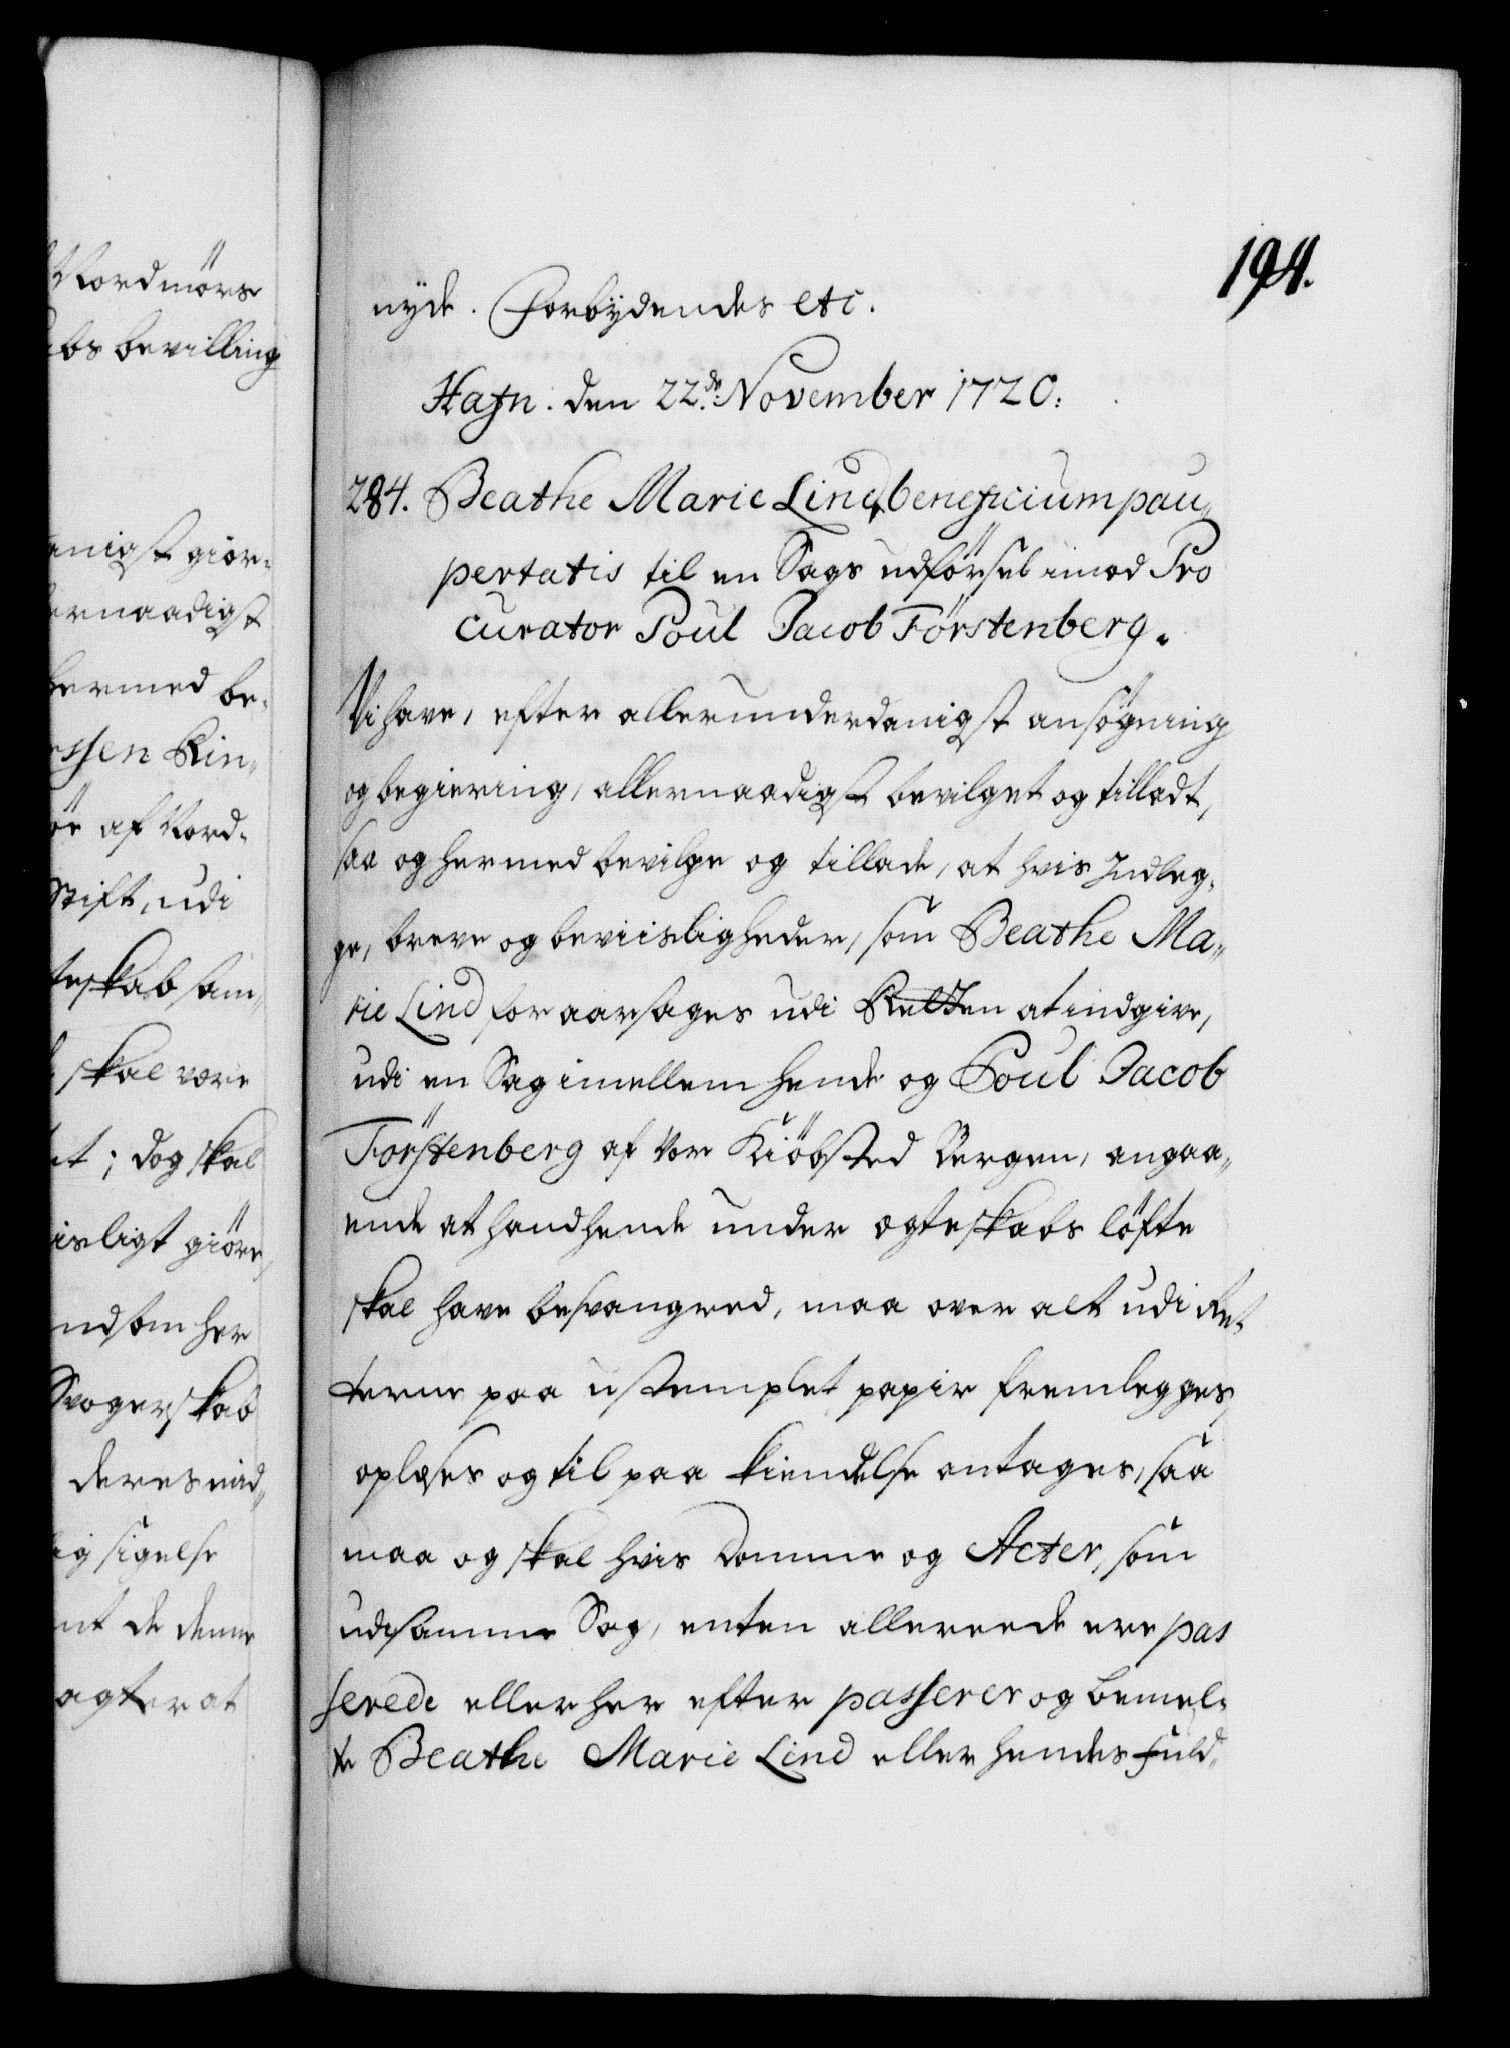 Nordmörs
bs bevilling
anigst giör-
ernaadigst
hermed be-
ssen Rin-
ör af Nord-
Stift, udi
teskab sam-
skal være
t; dog skal
isligt giöre,
nd som her
Svogerskab
deres mid-
ig sigelse
nt de denne
agter at
194.
nyde. Forbydendes etc.
Hafn: den 22de November 1720:
284. Beathe Marie Lind beneficium pau-
pertatis til en Sags udförsel imod Pro
curator Poul Jacob Förstenberg.
Vi have, efter allerunderdanigst ansögning
og begiering, allernaadigst bevilget og tilladt,
saa og hermed bevilge og tillade, at hvis Indleg-
ge, breve og beviisligheder, som Beathe Ma-
rie Lind foraarsages udi Retten at indgive,
udi en Sag imellem hende og Poul Jacob
Förstenberg af vor Kiöbsted Bergen, angaa-
ende at hand hende under ægteskabs löfte
skal have besvangred, maa over alt udi Ret-
terne paa ustemplet papir fremlegges,
oplæses og til paa kiendelse antages, saa
maa og skal hvis Domme og Acter, som
udi samme Sag, enten allereede ere pas
serede eller her efter passerer og bemel-
te Beathe Marie Lind eller hendes Fuld-